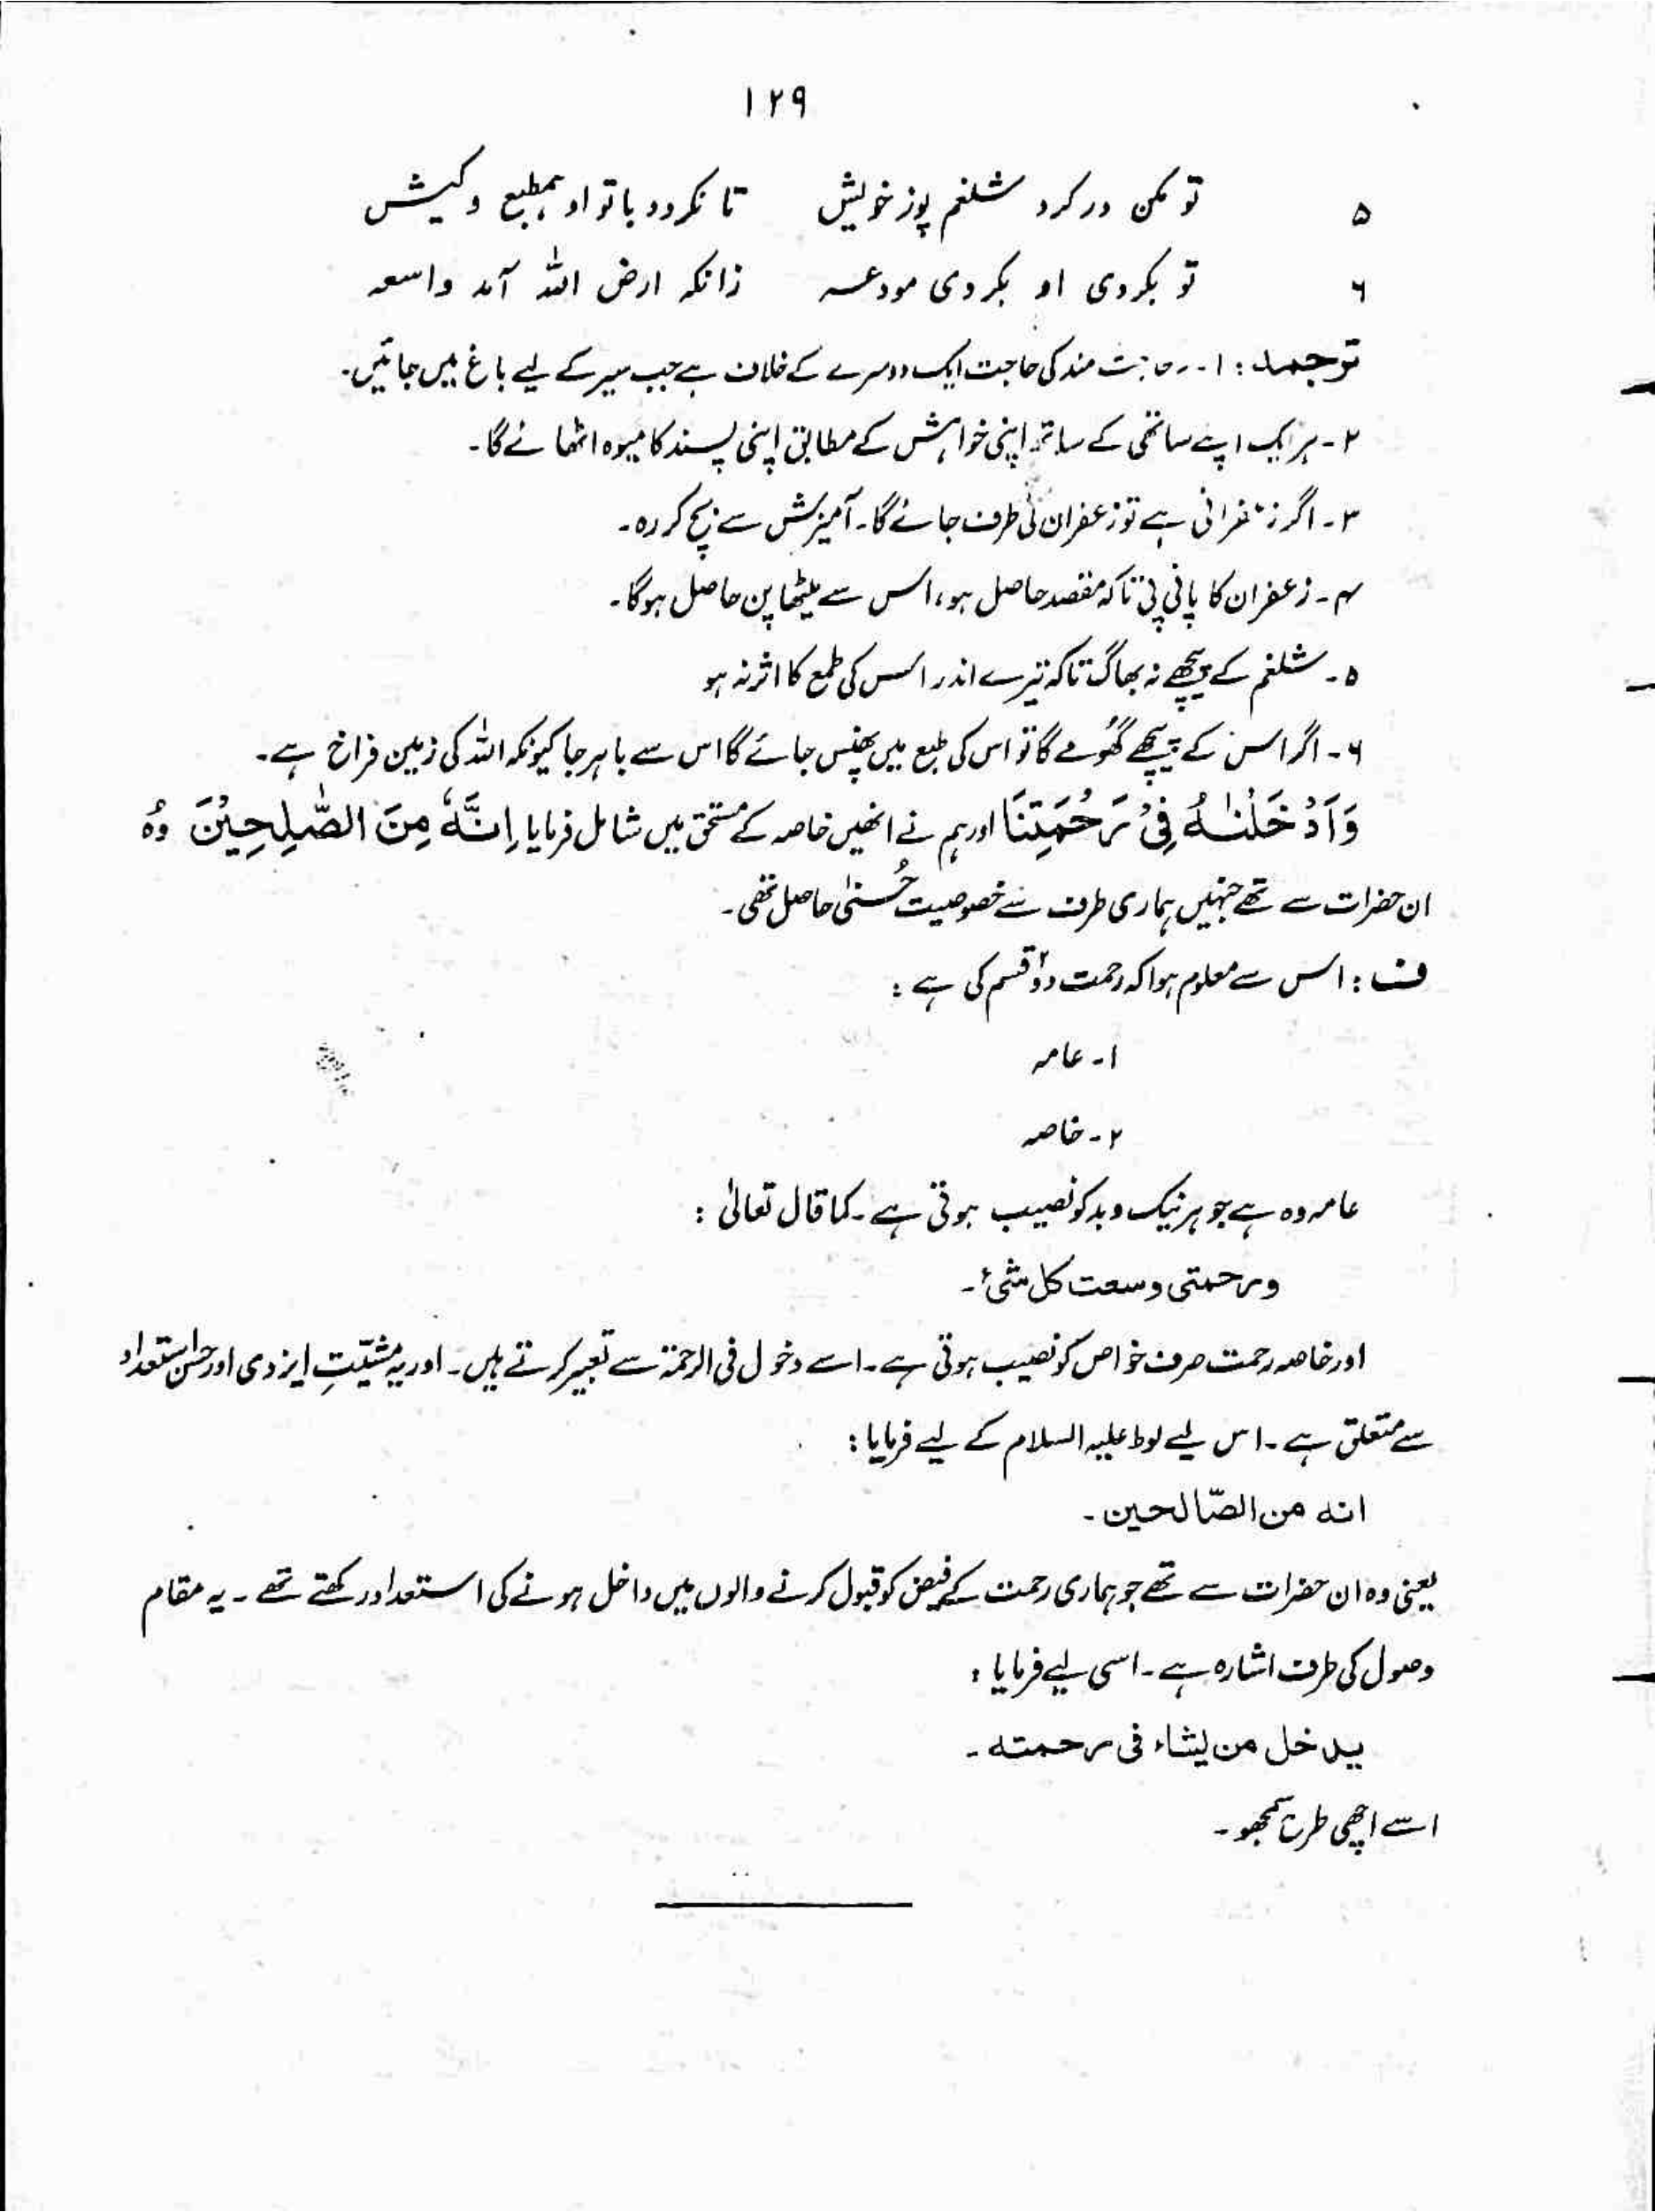 ۱۲۹
۵ تو مکن در کرد شلغم پوز خویش تا نکردد باتو او ہمطبع و کیش
۶ تو بکردی او بکردی مودعہ زانکہ ارض اللہ آمد واسعہ
ترجمہ : ۱۔ حاجت مند کی حاجت ایک دوسرے کے خلاف ہے جب سیر کے لیے باغ میں جائیں۔
۲۔ ہر ایک اپنے ساتھی کے ساتھ اپنی خواہش کے مطابق اپنی پسند کا میوہ اٹھائے گا۔
۳۔ اگر زعفرانی ہے تو زعفران کی طرف جائے گا۔ آمیزش سے بچ کر رہ۔
۴۔ زعفران کا پانی پی تاکہ مقصد حاصل ہو، اس سے میٹھا پن حاصل ہوگا۔
۵۔ شلغم کے پیچھے نہ بھاگ تاکہ تیرے اندر اس کی طمع کا اثر نہ ہو
۶۔ اگر اس کے پیچھے گھُومے گا تو اس کی طبع میں پھنس جائے گا اس سے باہر جا کیونکہ اللہ کی زمین فراخ ہے۔
وَاَدْخَلْنٰهُ فِیْ رَحْمَتِنَا اور ہم نے انھیں خاصہ کے مستحق میں شامل فرمایا اِنَّهٗ مِنَ الصّٰلِحِیْنَ وُہ
ان حضرات سے تھے جنہیں ہماری طرف سے خصوصیت حُسنیٰ حاصل تھی۔
ف : اس سے معلوم ہوا کہ رحمت دو۲ قسم کی ہے :
۱۔ عامہ
۲۔ خاصہ
عامہ وہ ہے جو ہر نیک و بد کو نصیب ہوتی ہے۔ کما قال تعالیٰ :
ورحمتی وسعت کل شئ۔
اور خاصہ رحمت صرف خواص کو نصیب ہوتی ہے۔ اسے دخول فی الرحمۃ سے تعبیر کرتے ہیں۔ اور یہ مشیّتِ ایزدی اور حسنِ استعداد
سے متعلق ہے۔ اس لیے لوط علیہ السلام کے لیے فرمایا :
انه من الصّالحین۔
یعنی وہ ان حضرات سے تھے جو ہماری رحمت کے فیض کو قبول کرنے والوں میں داخل ہونے کی استعداد رکھتے تھے۔ یہ مقام
وصول کی طرف اشارہ ہے۔ اسی لیے فرمایا :
یدخل من یشاء فی رحمته۔
اسے اچھی طرح سمجھو۔